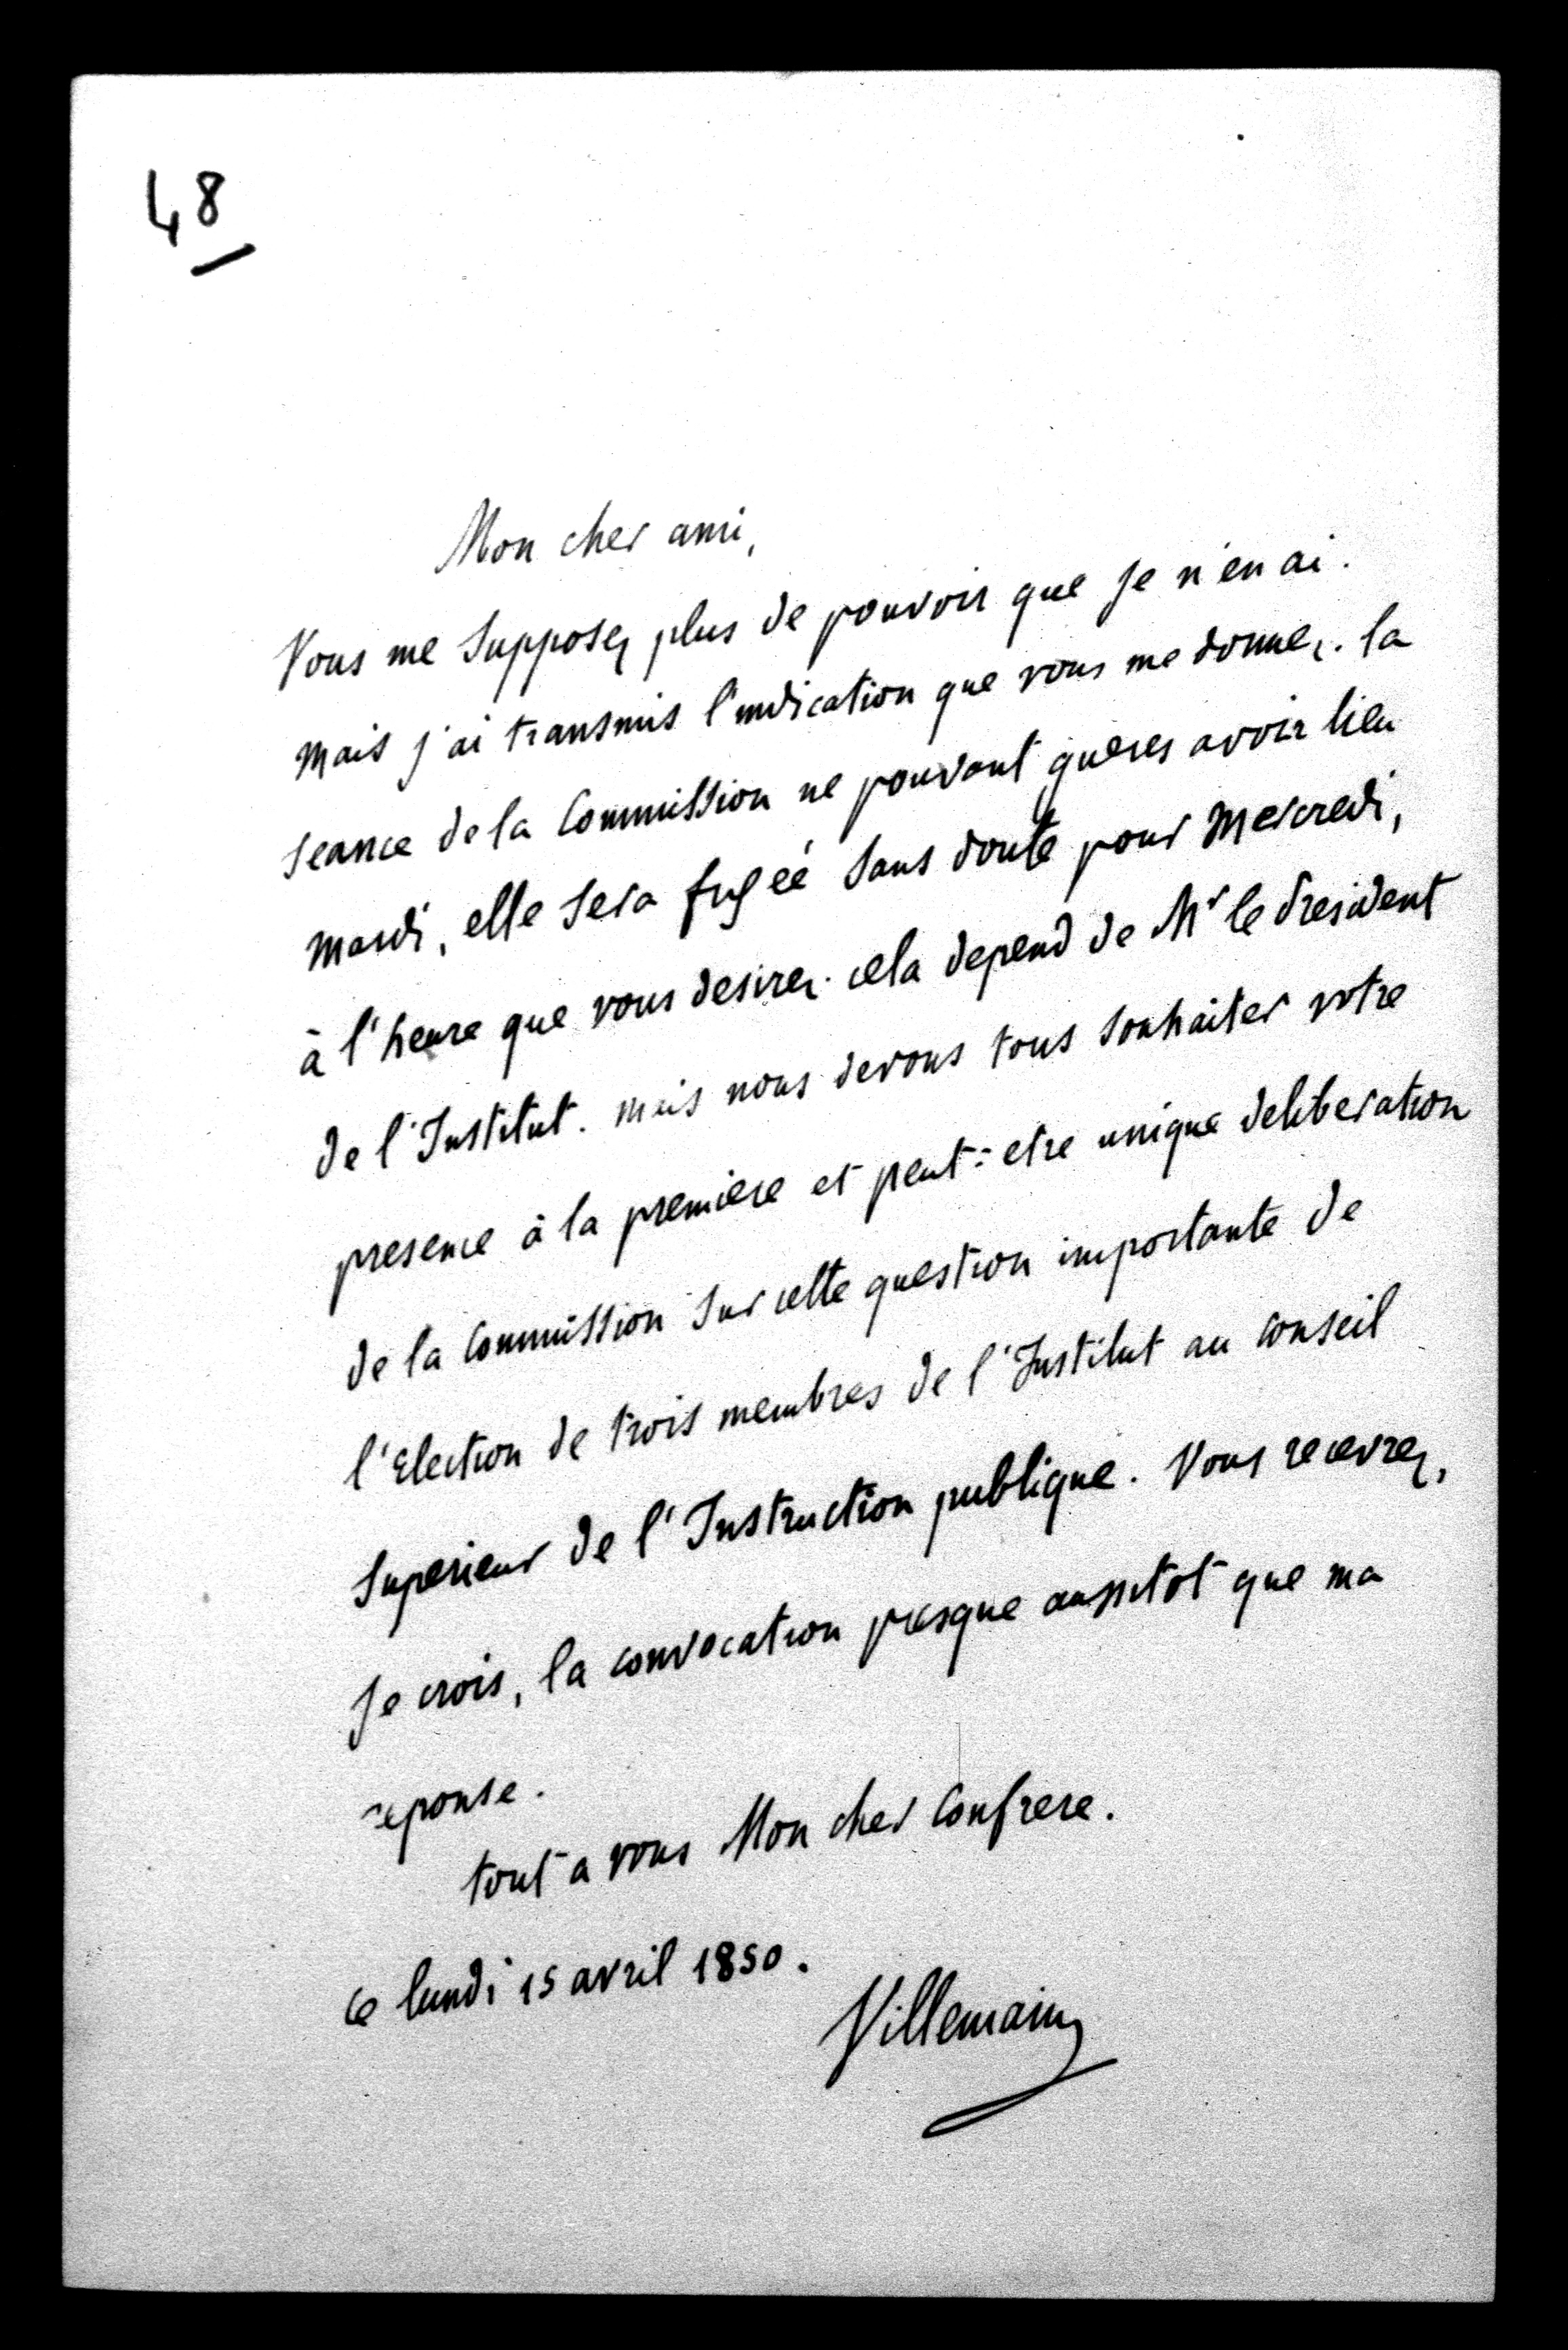 48
Mon cher ami,
Vous me supposez plus de pouvoir que je n'en ai.
mais j'ai transmis l'indication que vous me donnez. la
seance de la Commission ne pouvant gueres avoir lieu
mardi, elle sera fixéé sans doute pour mercredi,
à l'heure que vous desirez. cela depend de Mr le President
de l'Institut. mais nous devons tous souhaiter votre
presence à la premiere et peut-etre unique deliberation
de la commission sur cette question importante de
l'Election de trois membres de l'Institut au conseil
superieur de l'Instruction publique. Vous recevrez,
je crois, la convocation presque aussitot que ma
reponse.
tout a vous Mon cher Confrere.
ce lundi 15 avril 1850.
Villemain